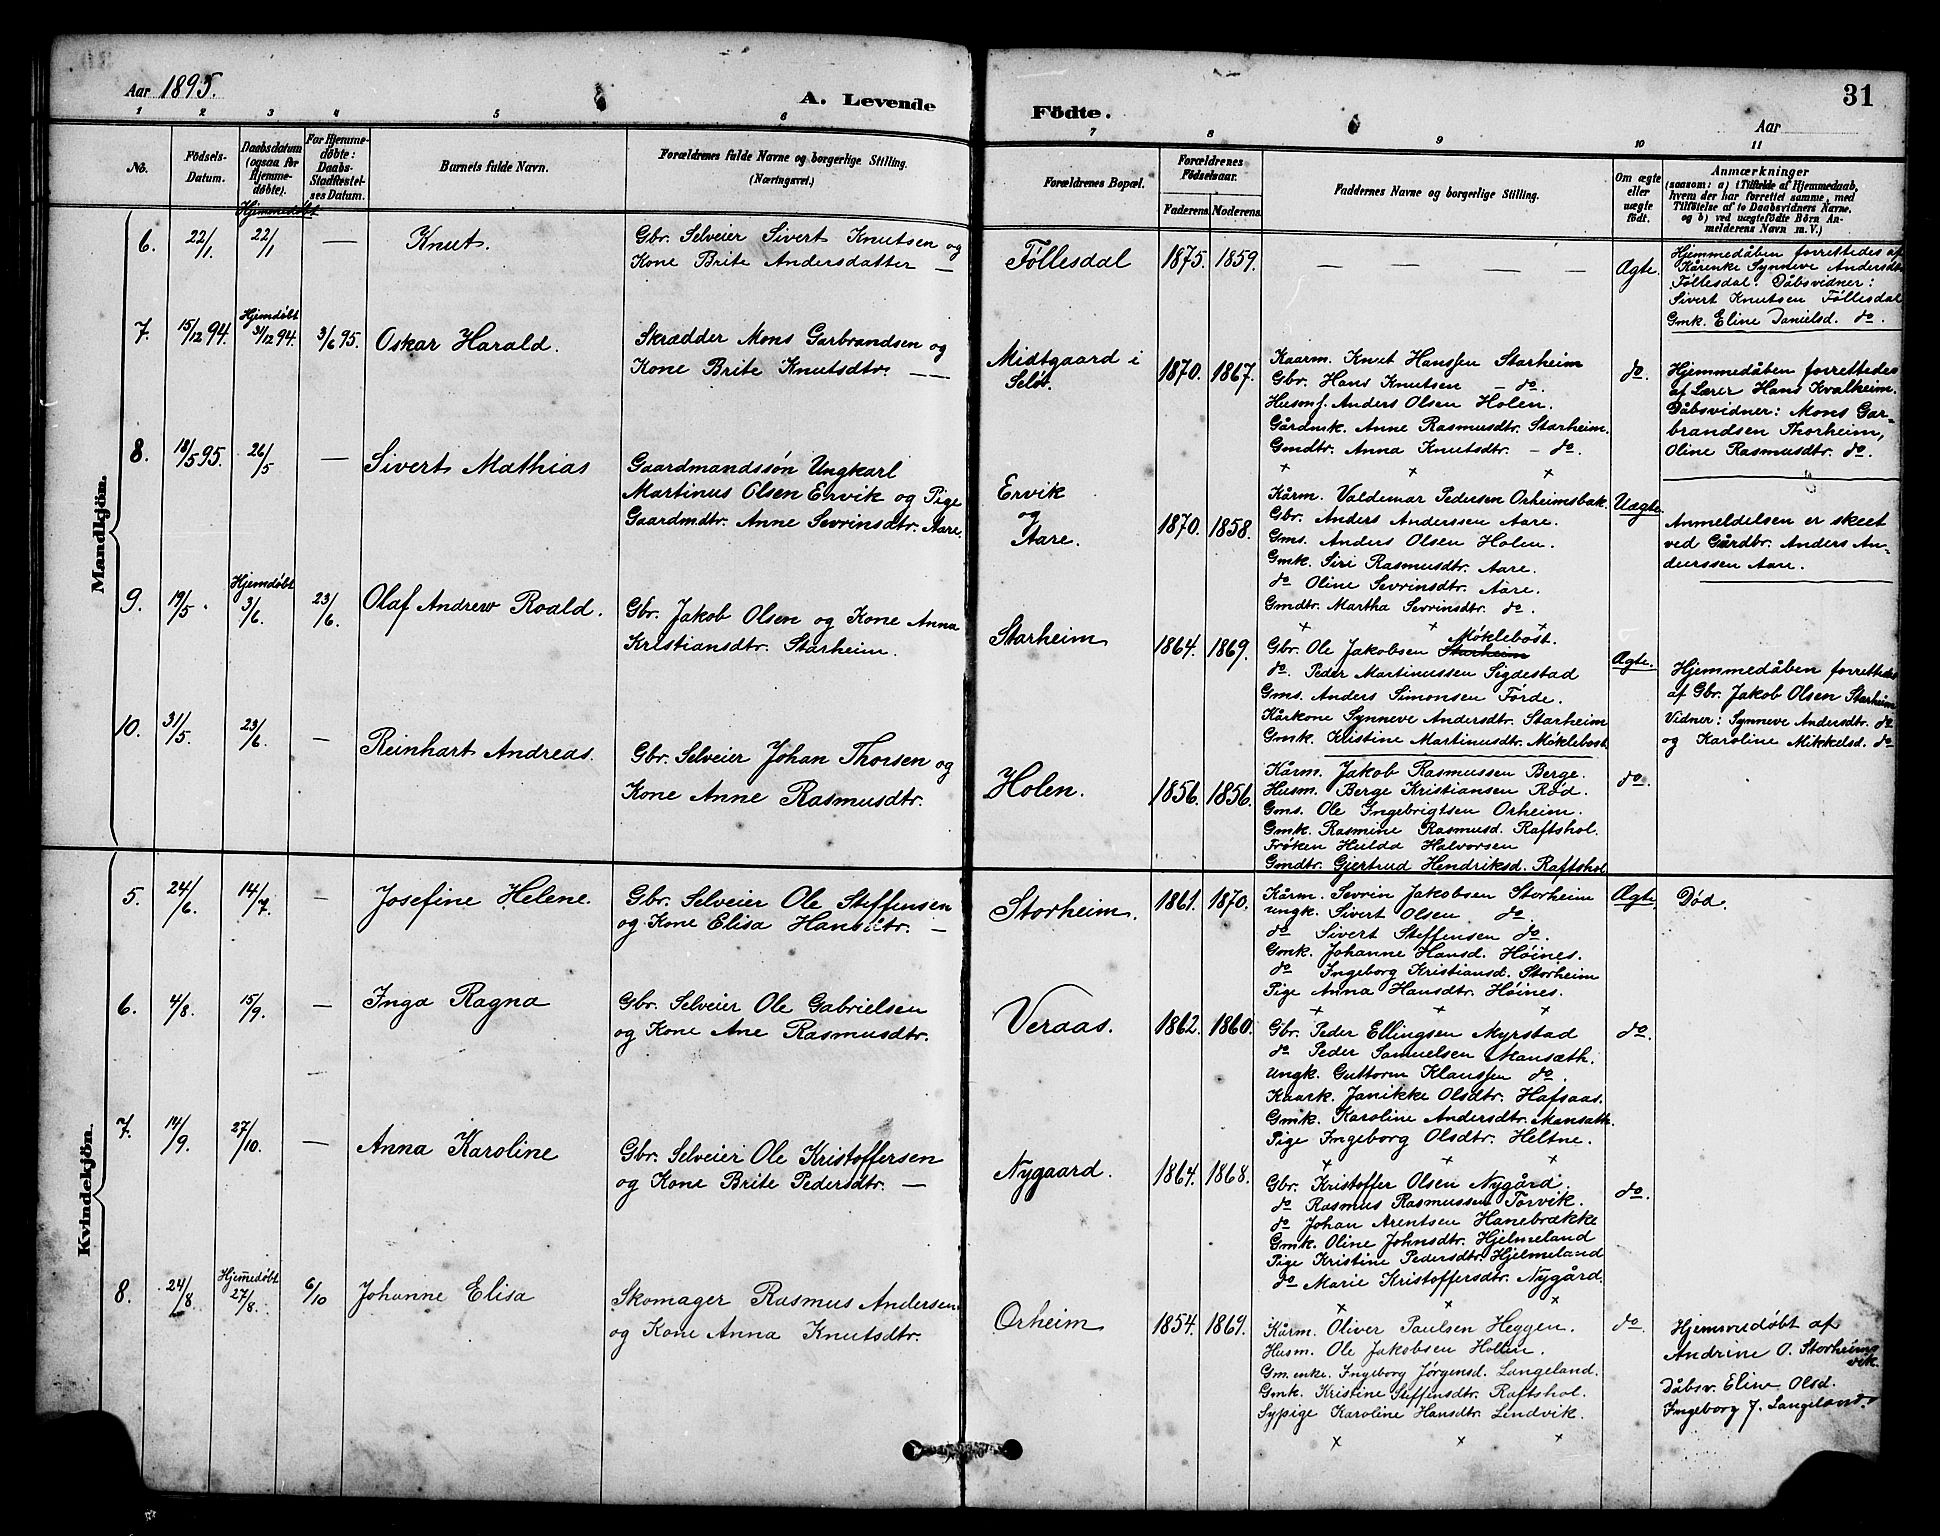 Aar 1895.
A. Levende
Födte.
31
Aar
1 2 3 4 5 6 7 8 9 10 11
No.
Födsels-
Datum.
Daabsdatum
(ogsaa for
Hjemme-
døbte).
For Hjemme-
døbte:
Daabs-
Stadfæstel-
ses Datum.
Barnets fulde Navn.
Forældrenes fulde Navne og borgerlige Stilling.
(Næringsvei.)
Forældrenes Bopæl.
Forældrenes
Födselsaar.
Faderens. Moderens.
Faddernes Navne og borgerlige Stilling.
Om ægte
eller
uægte
födt.
Anmærkninger
(saasom: a) i Tilfælde af Hjemmedaab,
hvem der har forrettet samme, med
Tilföielse af to Daabsvidners Navne,
og b) ved uægtefödte Börn An-
melderens Navn m. V.)
Mandkjön.
Hjemmedøbt
6. 22/1 22/1 — Knut.
Gbr. Selveier Sivert Knutsen og
Kone Brite Andersdatter —
Föllesdal 1875. 1859.
— — — —
Ægte.
Hjemmedåben forrettedes af
Kårenke Synneve Andersdtr
Föllesdal. Dåbsvidner:
Sivert Knutsen Föllesdal
Gmk. Eline Danielsd. do.
7. 15/12 94. Hjemdøbt 31/12 94. 3/6 95. Oskar Harald.
Skrædder Mons Garbrandsen og
Kone Brite Knutsdtr. — —
Midtgaard i
Seløt. 1870. 1867.
Kaarm. Knut Hanssen Starheim
Gbr. Hans Knutsen — do.
Husmf. Anders Olsen Holen.
Gårdmk. Anne Rasmusdtr. Starheim.
Gmdtr. Anna Knutsdtr. — do.
× × ×
do.
Hjemmedåben forrettedes
af Lærer Hans Kvalheim.
Dåbsvidner: Mons Gar-
brandsen Thorheim,
Oline Rasmusdtr. do.
8. 18/5 95. 26/5 — Sivert Mathias
Gaardmandssøn Ungkarl
Martinus Olsen Ervik og Pige
Gaardmdtr. Anne Sevrinsdtr. Aare.
Ervik
og
Aare. 1870. 1858.
Kårm. Valdemar Pedersen Orheimsbak.
Gbr. Anders Anderssen Aare.
Gms. Anders Olsen Holen.
Gmk. Siri Rasmusdtr. Aare.
do Oline Sevrinsdtr. Aare.
Gmdtr. Martha Sevrinsdtr. do.
× × ×
Uægte.
Anmeldelsen er skeet
ved Gårdbr. Anders An-
derssen Aare.
9. 19/5 Hjemdøbt 3/6. 23/6. Olaf Andrew Roald.
Gbr. Jakob Olsen og Kone Anna
Kristiansdtr. Starheim.
Starheim 1864. 1869.
Møklebost.
Gbr. Ole Jakobsen Starheim
do. Peder Martinussen Sigdestad
Gms. Anders Simonsen Förde.
Kårkone Synneve Andersdtr. Starheim
Gmk. Kristine Martinusdtr. Møklebost
Ægte.
Hjemmedåben forrettedes
af Gbr. Jakob Olsen Starheim
Vidner: Synneve Andersdtr. do
og Karoline Mikkelsd. do
10. 31/5. 23/6. — Reinhart Andreas.
Gbr. Selveier Johan Thorsen og
Kone Anne Rasmusdtr.
Holen. 1856. 1856.
Kårm. Jakob Rasmussen Berge.
Husm. Berge Kristiansen Rød.
Gms. Ole Ingebrigtsen Orheim.
Gmk. Rasmine Rasmusd. Raftshol.
Frøken Hulda Halvorsen
Gmdtr. Gjertrud Hendriksd. Raftshol
do.
Kvindekjön.
5. 24/6. 14/7. — Josefine Helene.
Gbr. Selveier Ole Steffensen
og Kone Elisa Hansdtr. —
Storheim. 1861. 1870.
Kårm. Sevrin Jakobsen Storheim
Ungk. Sivert Olsen do.
do Sivert Steffensen do.
Gmk. Johanne Hansd. Höines.
do Ingeborg Kristiansd. Storheim
Pige Anna Hansdtr. Höines.
× × ×
Ægte.
Død.
6. 4/8. 15/9. — Inga Ragna
Gbr. Selveier Ole Gabrielsen
og Kone Ane Rasmusdtr.
Veraas. 1862. 1860.
Gbr. Peder Ellingsen Myrstad
do Peder Samuelsen Mansæth.
Ungk. Guttorm Klaussen do.
Kaark. Janikke Olsdtr. Hafsaas.
Gmk. Karoline Andersdtr. Mansæth.
Pige Ingeborg Olsdtr. Heltne.
× × ×
do.
7. 14/9. 27/10. — Anna Karoline
Gbr. Selveier Ole Kristoffersen
og Kone Brite Pedersdtr. —
Nygaard. 1864. 1868.
Gbr. Kristoffer Olsen Nygård.
do Rasmus Rasmussen Torvik.
do Johan Arentsen Hanebrække
Gmk. Oline Johnsdtr. Hjelmeland
Pige Kristine Pedersdtr. Hjelmeland
do Marie Kristoffersdtr. Nygård.
× × ×
do.
8. 24/8 Hjemmedøbt 27/8. 6/10 Johanne Elisa
Skomager Rasmus Andersen
og Kone Anna Knutsdtr.
Orheim 1854. 1869.
Kårm. Oliver Paulsen Heggen.
Husm. Ole Jakobsen Hollen.
Gm.enke. Ingeborg Jørgensd. Langeland.
Gmk. Kristine Steffensdtr. Raftshol.
Sypige Karoline Hansdtr. Lindvik.
× × ×
do.
Hjemmedøbt af
Andrine O. Storheims
vik.
Dåbsv. Eline Olsd.
Ingeborg J. Langeland.